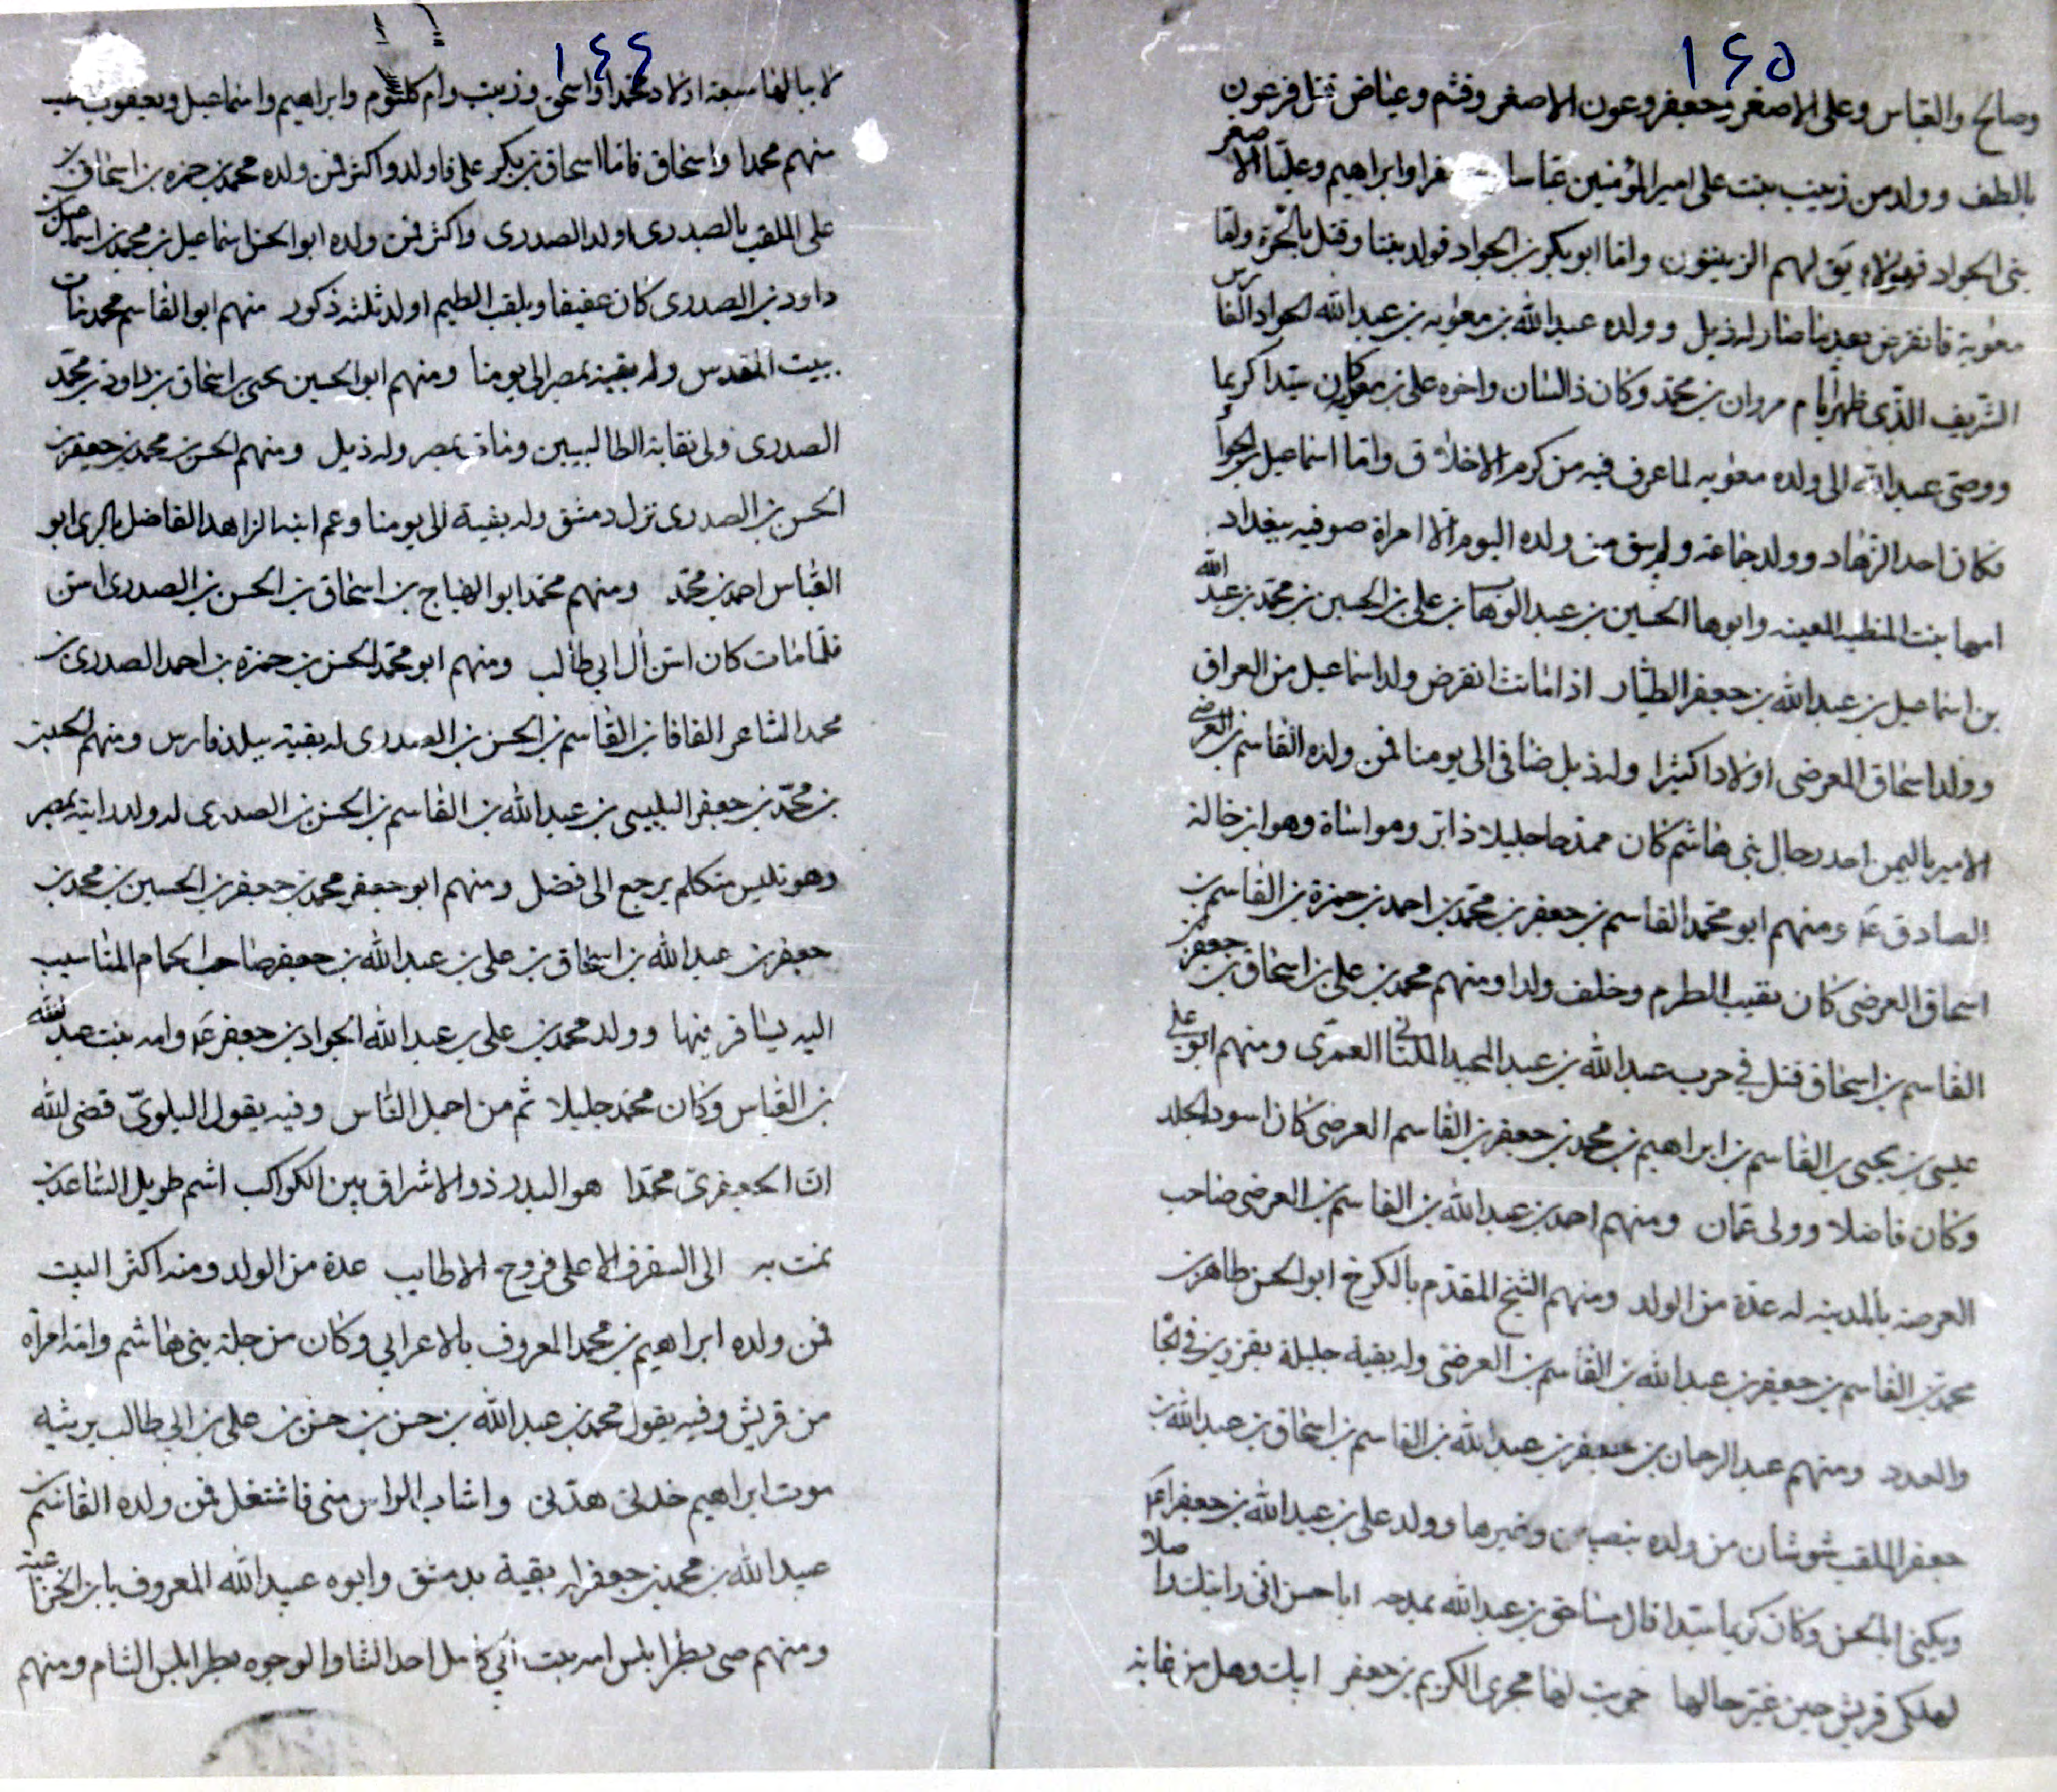 ١٤٥
وصالح والعباس وعلى الاصغر وجعفر وعون الاصغر وقثم وعياض قتل فرعون
بالطف وولد من زينب بنت على امير المؤمنين عباسا وابراهيم وعليا الاصغر
بنى الجواد فهؤلاء يق لهم الزينبيون واما ابو بكر بن الجواد فولد بنتا وقتل بالحرة واما
معوية فانقرض بعد ما صار له ذيل وولده عبد الله بن معويه بن عبد الله الجواد الفارس
الشريف الذى ظهر ايام مروان بن محمد وكان ذا لسان واخوه على بن معويه كان سيدا كريما
ووصى عبد الله الى ولده معويه لما عرف فيه من كرم الاخلاق واما اسماعيل بن الجواد
فكان احد الزهاد وولد جماعة ولم يبق من ولده اليوم الا امراة صوفيه ببغداد
امها بنت وابوها الحسين بن عبد الوهاب بن على بن الحسين بن محمد بن عبد الله
بن اسماعيل بن عبد الله بن جعفر الطيار اذا ماتت انقرض ولد اسماعيل من العراق
وولد اسحاق العرضى اولادا كثيرا وله ذيل ضافى الى يومنا فمن ولده القاسم بن العرضى
الامير باليمن احد رجال بنى هاشم كان ممدحا جليلا ذا بر ومواساة وهو ابن خالة
الصادق ع ومنهم ابو محمد القاسم بن جعفر بن محمد بن احمد بن حمزة بن القاسم بن
اسحاق العرضى كان نقيب الطرم وخلف ولدا ومنهم محمد بن على بن اسحاق بن جعفر بن
القاسم بن اسحاق قتل في حرب عبد الله بن عبد الحميد العمرى ومنهم ابو على
عيسى بن يحيى بن القاسم بن ابراهيم بن محمد بن جعفر بن القاسم العرضى كان اسود الجلد
وكان فاضلا وولى عمان ومنهم احمد بن عبد الله بن القاسم بن العرضى صاحب
العرصة بالمدينه له عدة من الولد ومنهم الشيخ المقدم بالكرخ ابو الحسن طاهر بن
محمد بن القاسم بن جعفر بن عبد الله بن القاسم بن العرضى وله بقية جليلة بقزوين
والعدد ومنهم عبد الرحمان بن جعفر بن عبد الله بن القاسم بن اسحاق بن عبد الله بن
جعفر الملقب شوشان من ولده بنصيبين وغيرها وولد على بن عبد الله بن جعفر
ويكنى ابا الحسن وكان كريما سيدا قال مساحق بن عبد الله يمدحه ابا حسن انى رايتك واصلا
لهلكى قريش حين غير حالها جريت لها مجرى الكريم بن جعفر ابيك وهل من غاية
١٤٤
لا ينالها سبعة اولاد محمدا واسحق وزينب وام كلثوم وابراهيم واسماعيل ويعقوب
منهم محمدا واسحاق فاما اسحاق على فاولد واكثر فمن ولده محمد بن حمزه بن اسحاق بن
على الملقب بالصدرى اولد الصدرى واكثر فمن ولده ابو الحسن اسماعيل بن محمد بن اسماعيل بن
داود بن الصدرى كان عفيفا ويلقب الطيم اولد ثلثه ذكور منهم ابو القاسم محمد مات
ببيت المقدس وله بقية بمصر الى يومنا ومنهم ابو الحسين يحيى بن اسحاق بن داود بن محمد
الصدرى ولى نقابة الطالبيين ومات بمصر وله ذيل ومنهم الحسن بن محمد بن جعفر بن
الحسن بن الصدرى نزل دمشق وله بقية الى يومنا وعم ابيه الزاهد الفاضل بالرى ابو
العباس احمد بن محمد ومنهم محمد ابو الهياج بن اسحاق بن الحسن بن الصدرى اسن
فلما مات كان اسن ال ابي طالب ومنهم ابو محمد الحسن بن حمزة بن احمد الصدرى بن
محمد الشاعر الفافا بن القاسم بن الحسن بن الصدرى له بقية ببلد فارس ومنهم الحسن
بن محمد بن جعفر البلبيسى بن عبد الله بن القاسم بن الحسن بن الصدرى له ولد رايته بمصر
وهو متكلم يرجع الى فضل ومنهم ابو جعفر محمد بن جعفر بن الحسين بن محمد بن
جعفر بن عبد الله بن اسحاق بن على بن عبد الله بن جعفر صاحب الحمام المناسيب
اليه يسافر فيها وولد محمد بن على بن عبد الله الجواد بن جعفر ع وامه بنت عبد الله
بن العباس وكان محمد جليلا ثم من اجمل الناس وفيه يقول البلوى قضى الله
ان الجعفرى محمدا هو البدر ذو الاشراق بين الكواكب اشم طويل الساعدين
نمت به الى الاعلى فروع الاطايب عدة من الولد ومنه اكثر البيت
فمن ولده ابراهيم بن محمد المعروف بالاعرابي وكان من جلة بنى هاشم وامه امراه
من قريش وفيه يقول محمد بن عبد الله بن حسن بن حسن بن على بن ابي طالب يرثيه
موت ابراهيم هدنى واشاب الراس منى فاشتعل فمن ولده القاسم بن
عبيد الله بن محمد بن جعفر له بقية بدمشق وابوه عبيد الله المعروف بابن
ومنهم صبى بطرابلس امه بنت ابي كامل احد الشام الوجوه بطرابلس الشام ومنهم